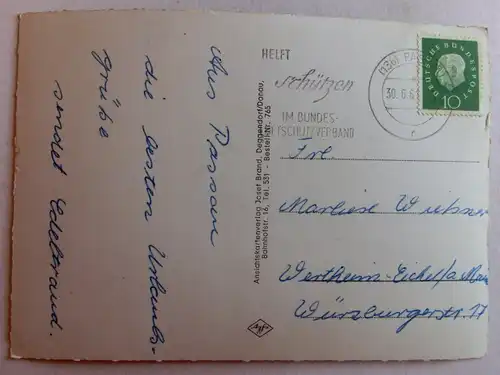 Aus Passau
die besten Urlaubs-
grüße
sendet Edeltraud.
Ansichtskartenverlag Josef Brand, Deggendorf/Donau,
Bahnhofstr. 16, Tel. 531 - Bestell-Nr. 765
Agfa
HELFT
schützen
IM BUNDES-
LUFTSCHUTZVERBAND
(13b) PA
30.6.6
c
DEUTSCHE BUNDESPOST
10
Frl.
Marliese Wießner
Wertheim-Eichel/a. Main
Würzburgerstr. 17